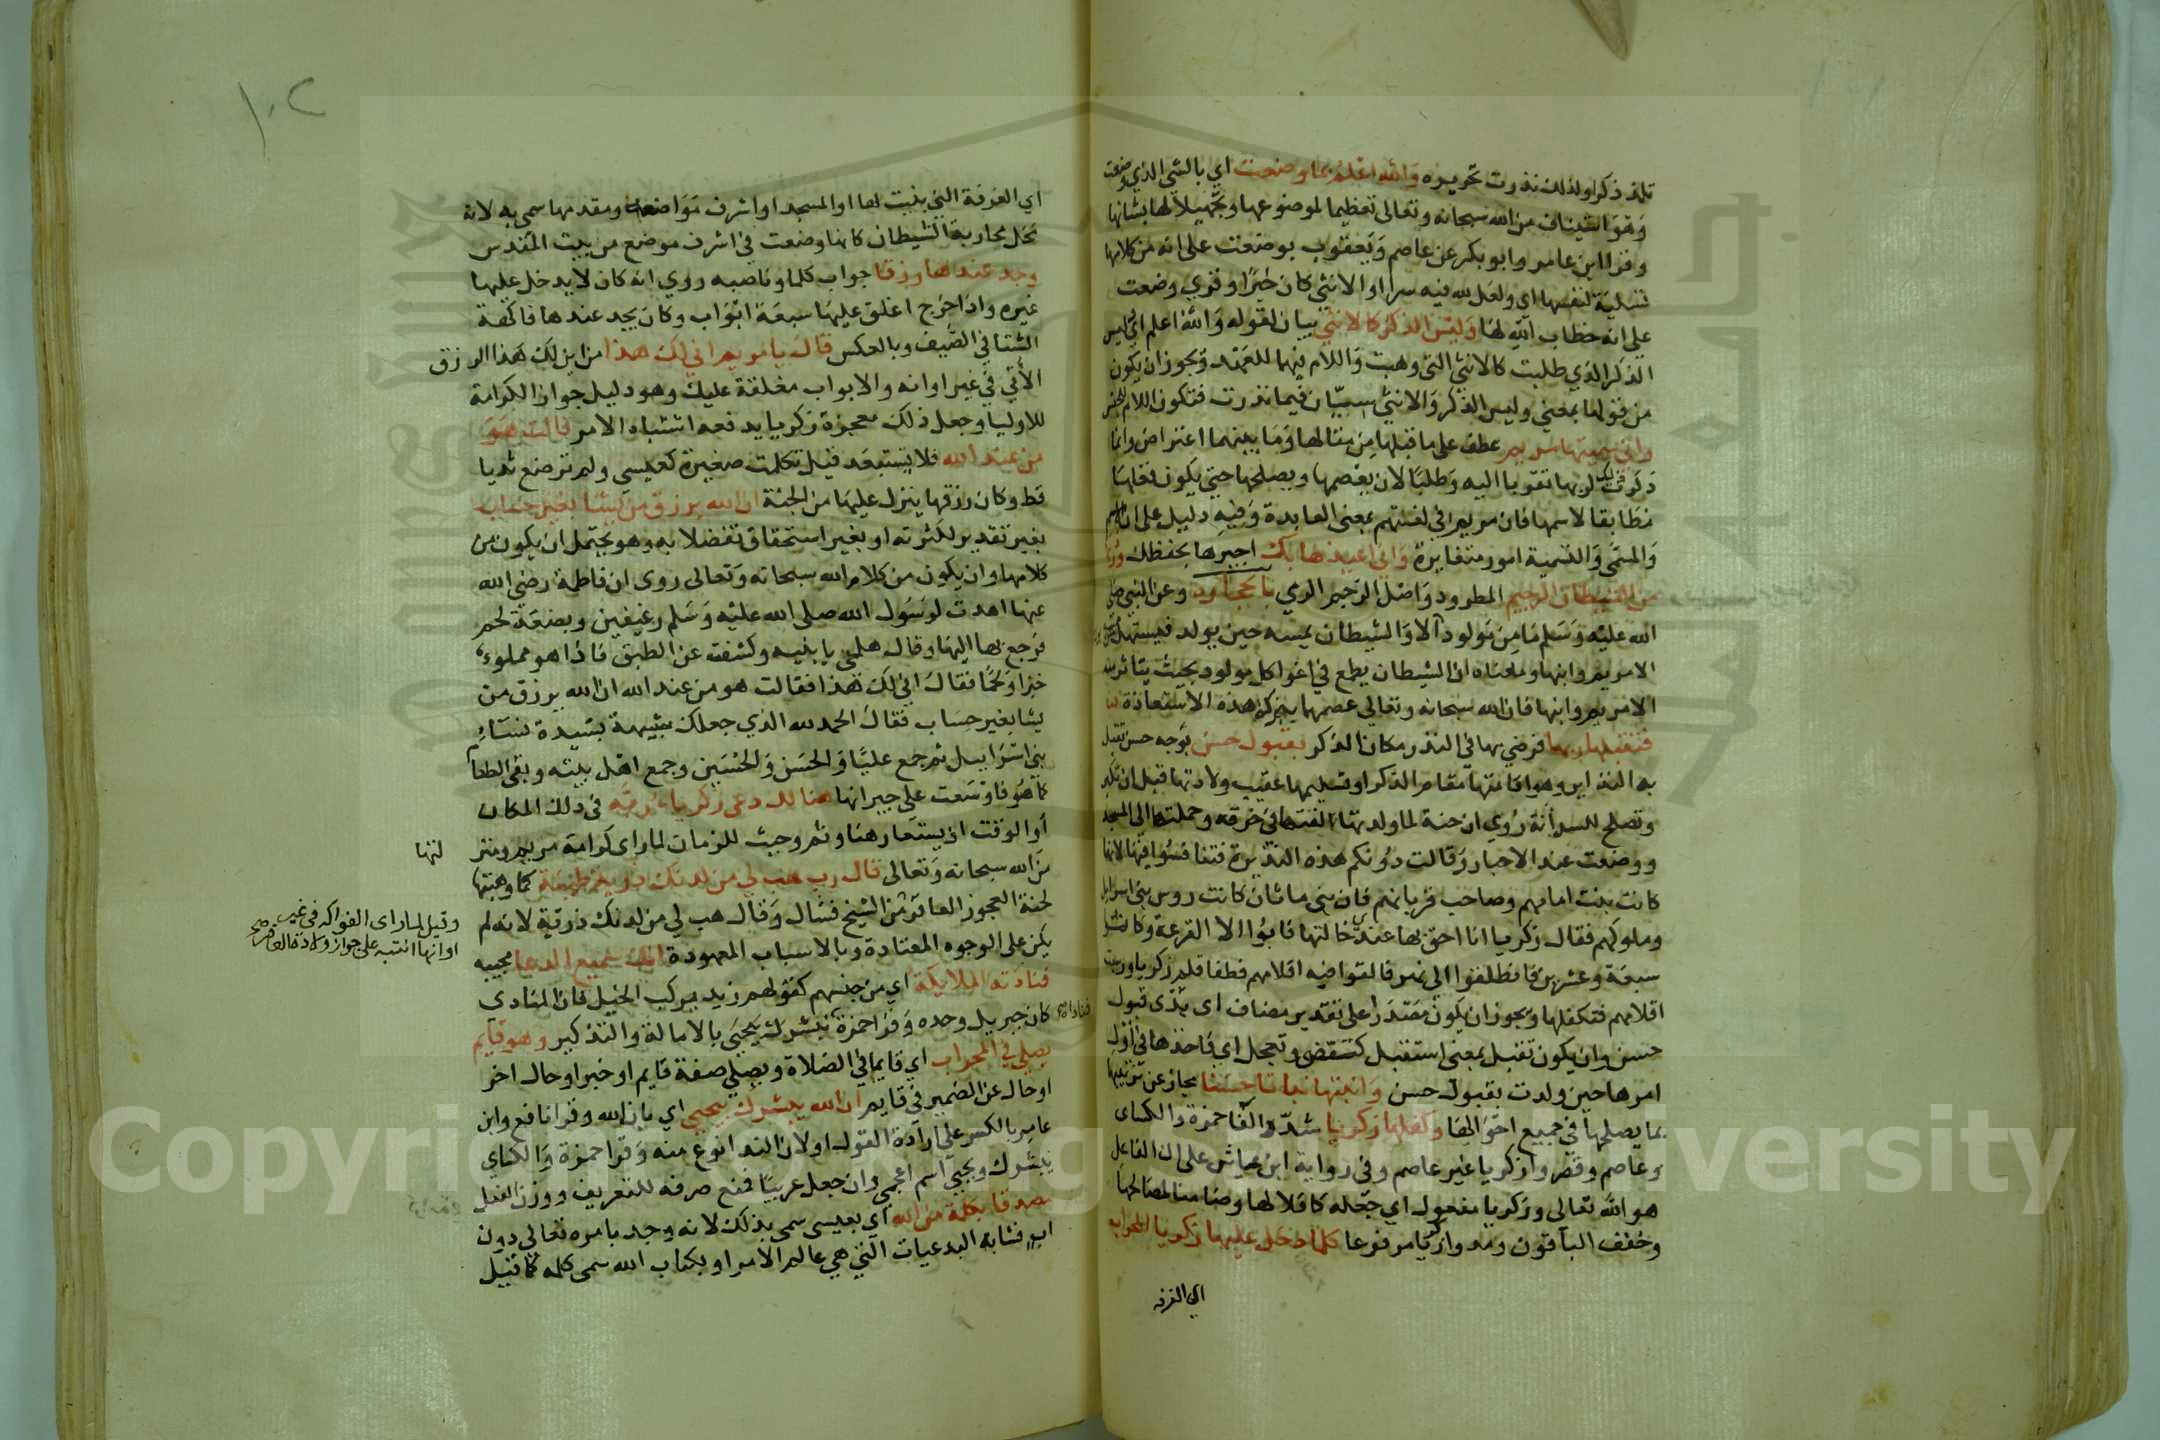 تلد ذكرا ولذلك نذرت تحريره والله اعلم بما وضعت اي بالشي الذي وضعت
وهو استيناف من الله سبحانه وتعالى تعظيما لموضوعها وتجهيلا لها بشانها
وقرا ابن عامر وابو بكر عن عاصم ويعقوب بوضعت على انه من كلامها
تسلية لنفسها اي ولعل لله فيه سرا او الانثى كان خيرا وقري وضعت
على انه خطاب الله لها وليس الذكر كالانثى بيان لقوله والله اعلم اي ليس
الذكر الذي طلبت كالانثى التي وهبت واللام فيهما للعهد ويجوز ان يكون
من قولها بمعنى وليس الذكر والانثى سيان فيما نذرت فتكون اللام للجنس
واني سميتها مريم عطف على ما قبلها من مقالها وما بينهما اعتراض وانما
ذكرت ذلك لربها تقربا اليه وطلبا لان يعصمها ويصلحها حتى يكون فعلها
مطابقا لاسمها فان مريم في لغتهم بمعنى العابدة وفيه دليل على ان الاسم
والمسمى والتسمية امور متغايرة واني اعيذها بك اجيرها بحفظك وذريتها
من الشيطان الرجيم المطرود واصل الرجم الرمي بالحجارة وعن النبي صلى
الله عليه وسلم ما من مولود الا والشيطان يمسه حين يولد فيستهل من مسه
الا مريم وابنها ومعناه ان الشيطان يطمع في اغوا كل مولود بحيث يتاثر منه
الا مريم وابنها فان الله سبحانه وتعالى عصمهما ببركة هذه الاستعاذة
فتقبلها ربها فرضي بها في النذر مكان الذكر بقبول حسن بوجه حسن تقبل
به النذاير وهو اقامتها مقام الذكر او تسليمها عقيب ولادتها قبل ان تكبر
وتصلح للسدانة روي ان حنة لما ولدتها لفتها في خرقة وحملتها الى المسجد
ووضعتها عند الاحبار وقالت دونكم هذه النذيرة فتنافسوا فيها لانها
كانت بنت امامهم وصاحب قربانهم فان بني ماثان كانت روس بني اسرايل
وملوكهم فقال زكريا انا احق بها عندي خالتها فابوا الا القرعة وكانوا
سبعة وعشرين فانطلقوا الى نهر فالقوا فيه اقلامهم فطفا قلم زكريا ورسبت
اقلامهم فتكفلها ويجوز ان يكون مصدرا على تقدير مضاف اي بذي قبول
حسن وان يكون تقبل بمعنى استقبل كتقضى وتعجل اي فاخذها في اول
امرها حين ولدت بقبول حسن وانبتها نباتا حسنا مجاز عن تربيتها
بما يصلحها في جميع احوالها وكفلها زكريا شدد الفا حمزة والكساي
وعاصم وقصروا زكريا غير عاصم وفي رواية ابن عياش على ان الفاعل
هو الله تعالى وزكريا مفعول اي جعله كافلا لها وضامنا لمصالحها
وخفف الباقون ومدوا زكريا مرفوعا كلما دخل عليها زكريا المحراب
اي الغرفة
١٠٢
اي الغرفة التي بنيت لها او المسجد او اشرف مواضعه ومقدمها سمي به لانه
محل محاربة الشيطان كانها وضعت في اشرف موضع من بيت المقدس
وجد عندها رزقا جواب كلما وناصبه روي انه كان لا يدخل عليها
غيره واذا خرج اغلق عليها سبعة ابواب وكان يجد عندها فاكهة
الشتا في الصيف وبالعكس قال يا مريم اني لك هذا من اين لك هذا الرزق
الآتي في غير اوانه والابواب مغلقة عليك وهو دليل جواز الكرامة
للاوليا وجعل ذلك معجزة زكريا يدفعه اشتباه الامر قالت هو
من عند الله فلا يستبعد قيل تكلمت صغيرة كعيسي ولم ترضع ثديا
قط وكان رزقها ينزل عليها من الجنة ان الله يرزق من يشا بغير حساب
بغير تقدير لكثرته او بغير استحقاق تفضلا به وهو يحتمل ان يكون من
كلامها وان يكون من كلام الله سبحانه وتعالى روى ان فاطمة رضي الله
عنها اهدت لرسول الله صلى الله عليه وسلم رغيفين وبضعة لحم
فرجع بها اليها وقال هلمي يا بنيه وكشفت عن الطبق فاذا هو مملوء
خبزا ولحما فقال اني لك هذا فقالت هو من عند الله ان الله يرزق من
يشا بغير حساب فقال الحمد لله الذي جعلك شبيهة بسيدة نساء
بني اسرايل ثم جمع عليا والحسن والحسين وجمع اهل بيته وبقي الطعام
كما هو فاوسعت على جيرانها هنالك دعى زكريا ربه في ذلك المكان
او الوقت اذ يستعار هنا وثم وحيث للزمان لما راى كرامة مريم ومنز
لتها
من الله سبحانه وتعالى قال رب هب لي من لدنك ذرية طيبة كما وهبتها
لحنة العجوز العاقر من الشيخ فسال وقال هب لي من لدنك ذرية لانه لم
وقيل لما راى الفواكه في غير
اوانها انتبه على جواز ولادة العاقر صح
يكن على الوجوه المعتادة وبالاسباب المعهودة انك سميع الدعا مجيبه
فنادته الملايكة اي من جنسهم كقولهم زيد يركب الخيل فان المنادى
كان جبريل وحده وقرا حمزة يبشرك بيحيى بالامالة والتذكير وهو قايم
يصلي في المحراب اي قايما في الصلاة ويصلي صفة قايم او خبر او حال اخر
او حال عن الضمير في قايم ان الله يبشرك بيحيى اي بان الله وقرا نافع وابن
عامر بالكسر على ارادة القول او لان الندا نوع منه وقرا حمزة والكساي
يبشرك ويحيى اسم اعجمي وان جعل عربيا فمنع صرفه للتعريف ووزن الفعل
مصدقا بكلمة من الله اي بعيسى سمي بذلك لانه وجد بامره تعالى دون
اب فشابه البدعيات التي هي عالم الامر او بكتاب الله سمى كلمه كما قيل